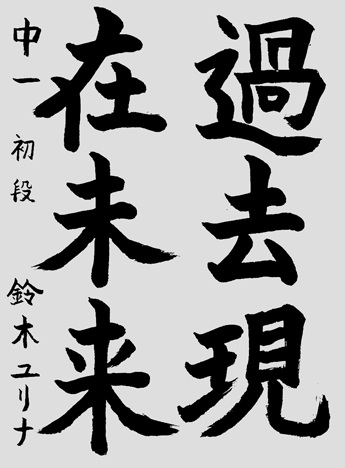 過去現
在未来
中一 初段 鈴木ユリナ